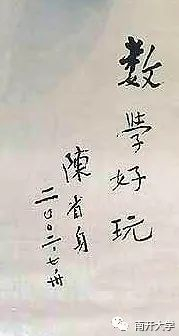 数学好玩
陳省身
二〇〇二、七、卅
南开大学